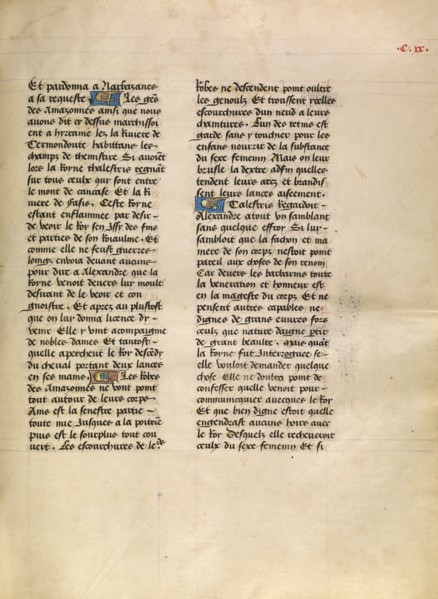 .C. xx.
Et pardonna a Narbazanes
a sa requeste Les gēs
des Amazones ainsi que nous
auons dit cy dessus marchissoi
ent a hyrcanie lez la Riuiere de
Termondonte habittans les
champs de themistire Si auoiēt
lors la Royne thalestris regnāt
sur tous ceulx qui sont entre
le mont de caucase Et la Ri
uiere de phasis. Ceste Royne
estant enflammee par desir
de veoir le Roy sen Issy des fins
et parties de son Roiaulme. Et
comme elle ne feust gueres
loings enuoia deuant aucuns
pour dire a Alexandre que la
Royne venoit deuers luy moult
desirant de le veoir et con
gnoistre. Et apres au plustost
que on luy donna licence dy
venir Elle y vint acompaignie
de nobles dames Et tantost
quelle apercheut le Roy descēdy
du cheual portant deux lances
en ses mains. Les Robes
des Amazones ne vont point
tout autour de leurs corps
Ains est la senestre partie
toute nue Jusques a la poitrie
puis est le sourplus tout cou
uert. Les escourchures de leurs
Robes ne descendent point oultre
les genoulz Et troussent ycelles
escourchures dun neud a leurs
chaintures. Lun des tetins est
garde sans y touchier pour les
enfans nourrir de la substance
du sexe femenin Mais on leur
brusle la dextre adfin quelles
tendent leurs arcz et brandis
sent leurs lances aiseement.
Talestris Regardoit
Alexandre atout vn samblant
sans quelque effroy Si luy
sambloit que la fachon et ma
niere de son corps nestoit point
pareil aux choses de son renom
Car deuers les barbarins toute
la veneration et honneur est
en la mageste du corps Et ne
pensent autres capables ne
dignes de grans euures fors
ceulx que nature daigne ptir
de grant beaulte. mais quāt
la Royne fut Interroguee se
elle vouloit demander quelque
chose Elle ne doubta point de
confesser quelle venoit pour
communiquier auecques le Roy
Et que bien digne estoit quelle
engendrast aucuns hoirs auec
le Roy Desquelz elle recheueroit
ceulx du sexe femenin Et si